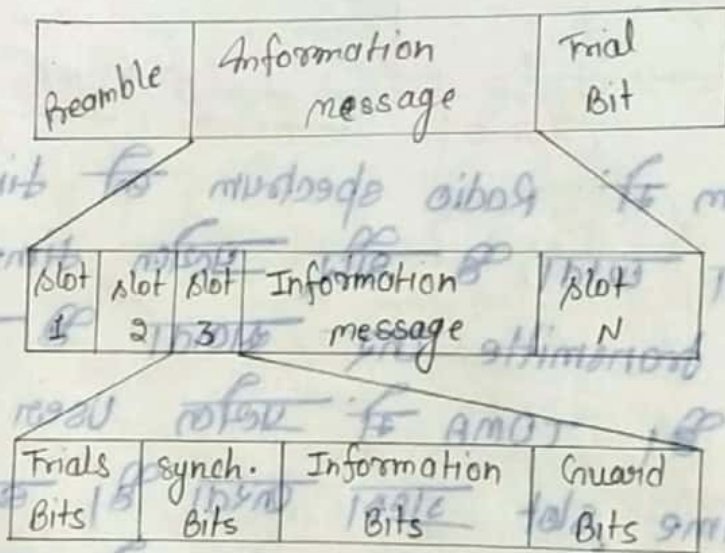 Preamble
Information
message
Trial
Bit
slot
1
slot
2
slot
3
Information
message
slot
N
Trials
Bits
Synch.
Bits
Information
Bits
Guard
Bits